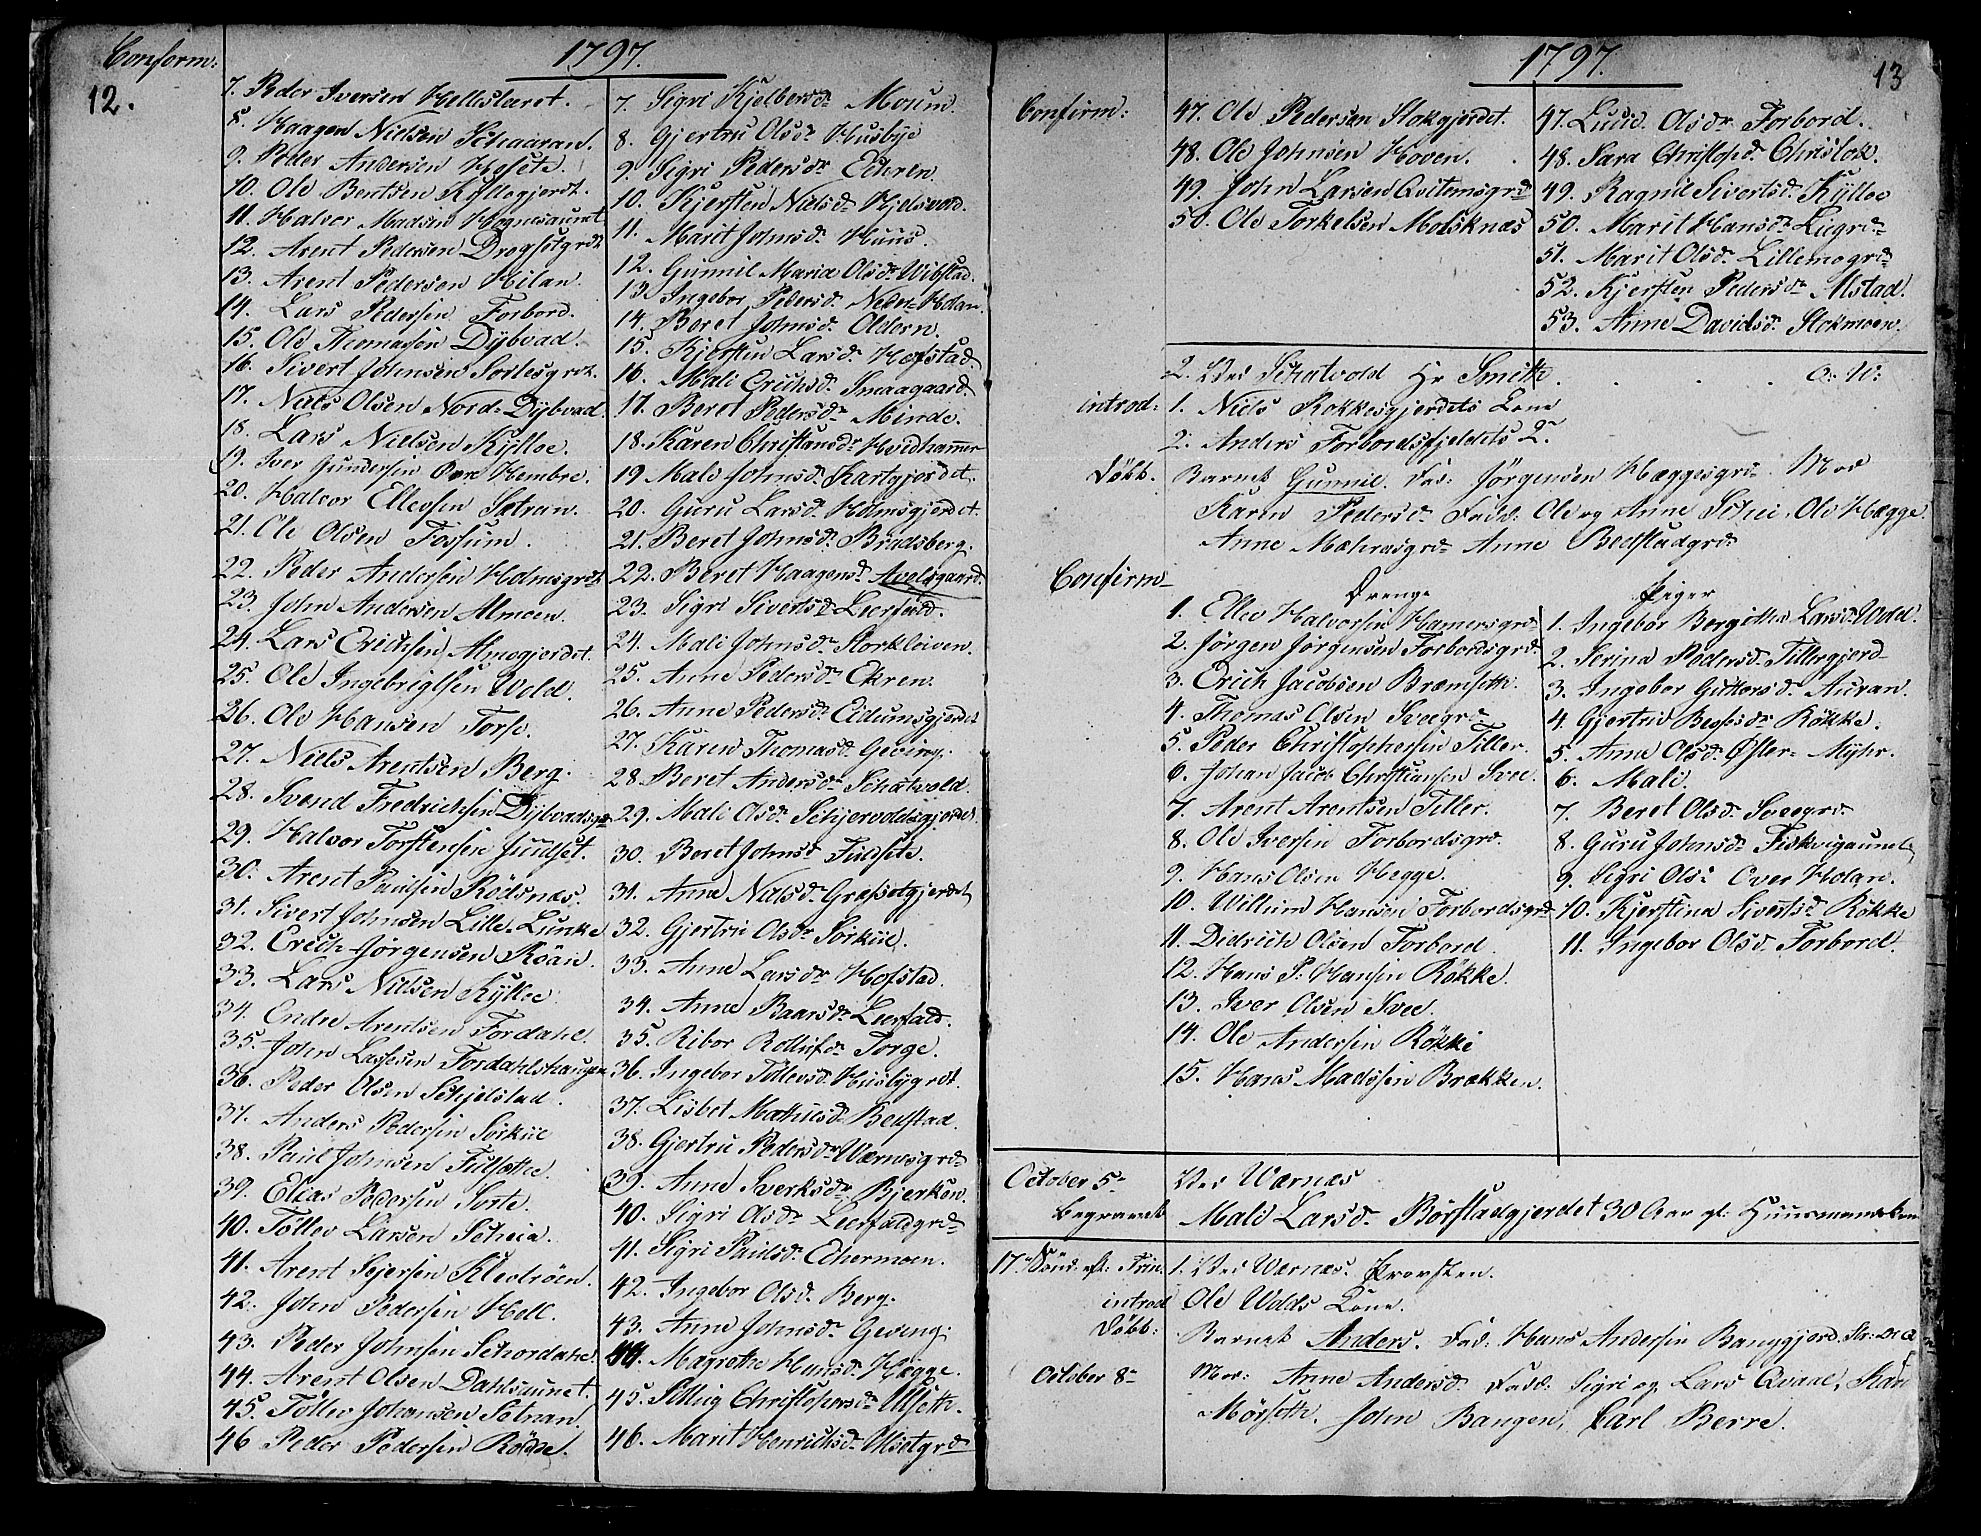 Conform:
12.
1797.
7. Peder Iversen Hellesleret.
8. Haagen Nielsen Schaaran.
9. Peder Andersen Hofseth.
10. Ole Bentsen Kyllogjerdt.
11. Halvor Madsen Hognesaunet
12. Arent Pedersen Drogsetgrdt
13. Arent Pedersen Hilan.
14. Lars Pedersen Forbord.
15. Ole Thomassen Dybvad.
16. Sivert Johnsen Sorlesgrdt.
17. Niels Olsen Nord-Dybvad.
18. Lars Nielsen Kylloe.
19. Iver Gundersen Øvre Hembre.
20. Halvor Ellevsen Sætran.
21. Ole Olsen Fossum.
22. Peder Andersen Holmsgrdt
23. John Andersen Almoen.
24. Lars Erichsen Almogjerdet.
25. Ole Ingebrigtsen Wold.
26. Ole Hansen Torse.
27. Niels Arentsen Berg.
28. Svend Fredrichsen Dybvadsgr
29. Halvor Torstensen Juudset.
30. Arent Paulsen Rödsnæs.
31. Sivert Johnsen Lille-Lunke
32. Erich Jörgensen Röan.
33. Lars Nielsen Kylloe
34. Endre Arentsen Fordahl.
35. John Lassesen Fordahlshaugen
36. Peder Olsen Schjelstad.
37. Anders Pedersen Sorkiil
38. Paul Johnsen Fulsethe.
39. Elias Pedersen Sorte.
40. Töllev Larsen Scheia.
41. Arent Sejersen Kledröen.
42. John Pedersen Hell.
43. Peder Johnsen Schordahl.
44. Arent Olsen Dahlsaunet.
45. Töllev Johansen Setnan.
46 Peder Pedersen Rökke.
7. Sigri Kjelbersdr Moum.
8. Gjertru Olsdr Husbye
9. Sigri Pedersdr Echren.
10. Kjersten Nielsdr Hjelsvold.
11. Marit Johnsdr Huus.
12. Gunnil Maria Olsdr Wibstad.
13. Ingebor Pedersdr Neder-Holan.
14. Beret Johnsdr Oldern.
15. Kjersten Larsdr Hofstad.
16. Mali Erichsdr Smaagaard.
17. Beret Pedersdr Minde.
18. Karen Christiansdr Hvidhammer
19 Mali Johnsdr Kartgjerdet.
20. Guru Larsdr Holmsgjerdet.
21. Beret Johnsdr Bradsberg.
22. Beret Haagensdr Avelsgaard.
23. Sigri Sivertsdr Leerfald.
24. Mali Johnsdr Storkleiven.
25. Anne Pedersdr Ekren.
26. Anne Pedersdr Eidumsgjerdet
27. Karen Thomasdr Geving.
28. Beret Andersdr Schatvold.
29. Mali Olsdr Schjervoldsgjerdet.
30. Beret Johnsdr Fulsete.
31. Anne Nielsdr Græsetgjerdet
32. Gjertru Olsdr Sorkiil.
33. Anne Larsdr Hofstad.
34. Anne Baarsdr Leerfald.
35. Ribor Rollufsdr Torge.
36. Ingebor Töllevsdr Husbygrdt.
37. Lisbet Mathiesdr Bedstad.
38. Gjertru Pedersdr Wærnesgrdt
39. Anne Sverksdr Bjerken.
40. Sigri Olsdr Leerfaldgrdt
41. Sigri Paulsdr Echermoen.
42. Ingebor Olsdr Berg.
43. Anne Johnsdr Geving.
44. Magrethe Hansdr Hægge.
45. Sillig Christophersdr Ulseth.
46. Marit Henrichsdr Ulsetgrdt
13
1797.
Confirm:
47. Ole Pedersen Stokgjerdet.
48. Ole Johnsen Hoven.
49. John Larsen Qvitemsgrdt
50. Ole Torkelsen Molsknæs
47. Lucie Olsdr Forbord.
48. Sara Christophdr Chrislok.
49. Ragnil Sivertsdr Kylloe
50. Marit Hansdr Liegrdt
51. Marit Olsdr Lillemogrdt
52. Kjersten Pedersdr Alstad.
53. Anne Davidsdr Stokmoen.
2. Ved Schatvold Hr Smith. . . . O: W:
introd: 1. Niels Rokkesgjerdets Kone
2. Anders Forbordsfjeldets K.
Döbt. Barnet Gunnil. Fad: Jörgensen Hæggesgrdt. Mod
Karen Pedersdr Fadd: Ole og Anne Schei, Ole Hægge.
Anne Mæhresgrdt Anne Bedstadgrdt
Confirm
Drenge
1. Ellev Halvorsen Hamersgrdt
2. Jörgen Jörgensen Forbordsgrdt
3. Erich Jacobsen Bremseth.
4. Thomas Olsen Sveegrdt
5. Peder Christophersen Tiller.
6. Johan Jacob Christiansen Svee.
7. Arent Arentsen Tiller.
8. Ole Iversen Forbordsgrdt
9. Hans Olsen Hegge.
10. Willum Hansen Forbordsgrdt
11. Didrich Olsen Forbord.
12. Hans P: Hansen Rökke.
13. Iver Olsen Svee.
14. Ole Andersen Rökke
15. Hans Madssen Brækken.
Piger
1. Ingebor Bergitha Larsdr Wold.
2. Serina Pedersdr Tillergjerd
3. Ingebor Guttorsdr Auran.
4. Gjertrud Bersesdr Rökke.
5. Anne Olsdr Øster-Myhr.
6. Mali.
7. Beret Olsdr Sveegrdt
8. Guru Johnsdr Fiskvigaunet
9. Sigri Olsdr Over Holan.
10. Kjerstina Sivertsdr Rökke
11. Ingebor Olsdr Forbord.
October 5te Ved Wærnæs
begravet Mali Larsdr Börstadgjerdet 30 Aar gl: Huusmandskone
17. Sönd. eft: Trin. 1. Ved Wærnæs. Provsten.
introd Ole Wolds Kone.
Döbt: Barnet Anders. Fad: Hans Andersen Banggjord. Str: D: a
October 8de Mor: Anne Andersdr Fadd: Sigri og Lars Qvaal, Kari
Mörseth. John Bangen, Carl Berre.